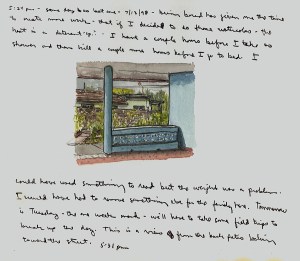 5:20 pm - same day as last one - 7/13/98 - being bored has given me the time
to create more work - that if I decided to do those watercolors - the
heat is a deterrent - I have a couple hours before I take a
shower and then kill a couple more hours before I go to bed I
could have used something to read but the weight was a problem.
I would have had to remove something else for the family here. Tomorrow
is Tuesday - the week - we'll have to take some field trips to
break up the day. This is a view from the back patio looking
toward the street. 5:36 pm